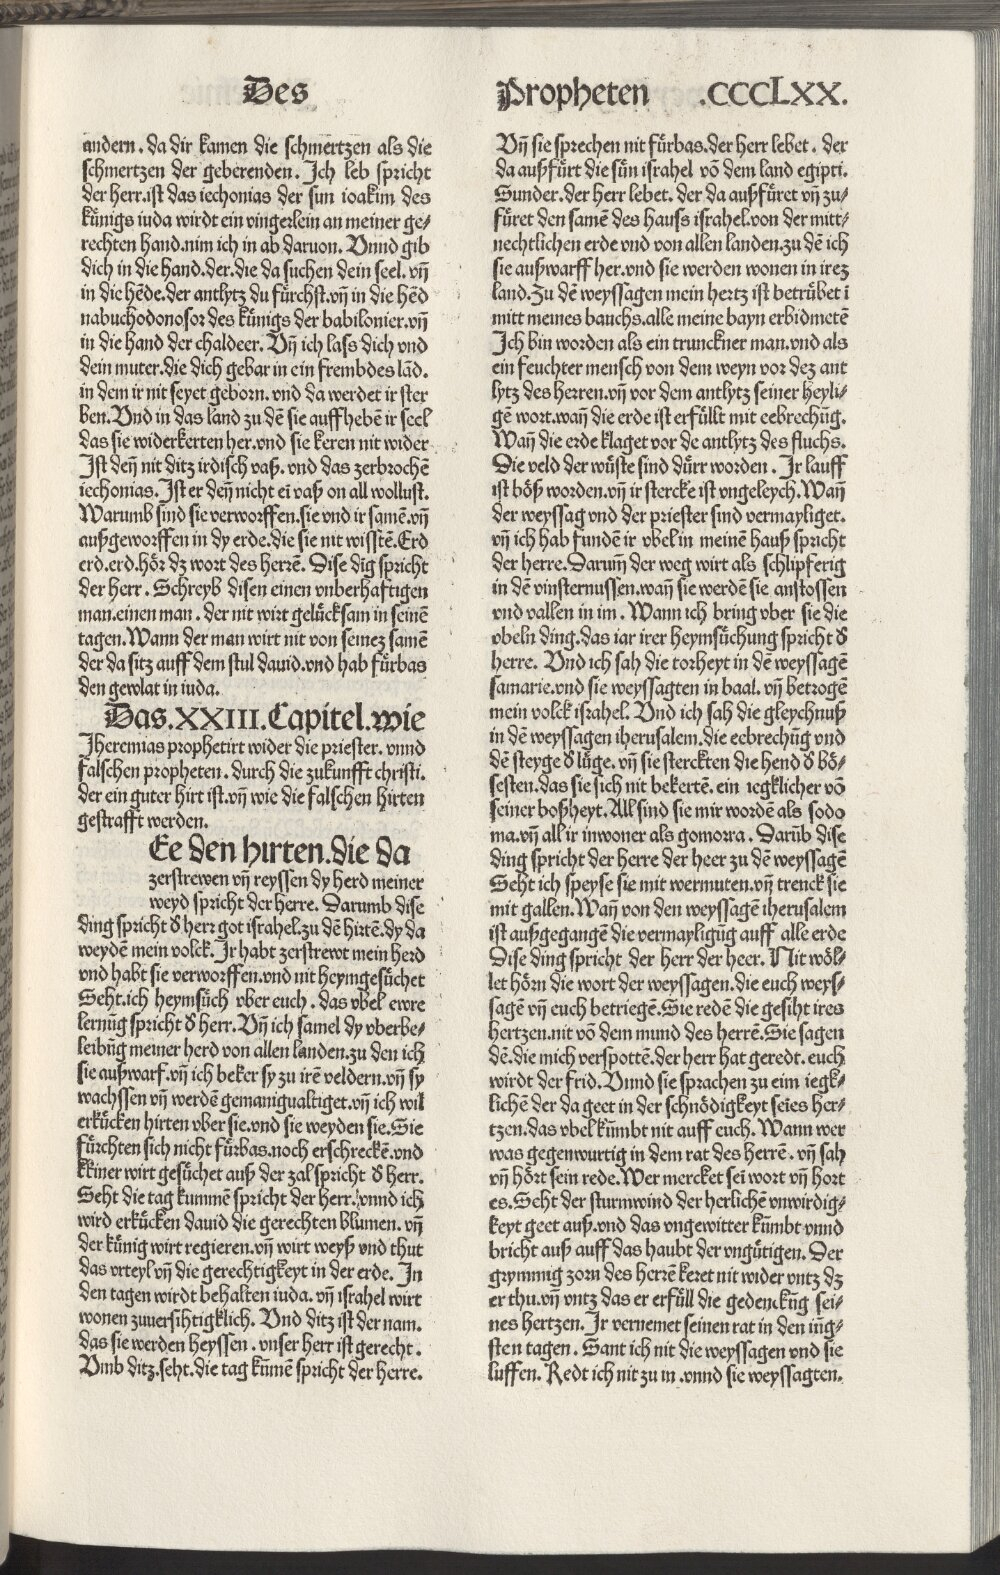 Des
Propheten .CCCLXX.
andern. da dir kamen die schmertzen als die
schmertzen der geberenden. Ich leb spricht
der herr.ist das iechonias der sun ioakim des
künigs iuda wirdt ein vingerlein an meiner ge⸗
rechten hand.nim ich in ab daruon. Vnnd gib
dich in die hand.der.die da suchen dein seel. vñ
in die hēde.der antlytz du fürchst.vñ in die hēd
nabuchodonosor des künigs der babilonier.vñ
in die hand der chaldeer. Vñ ich lass dich vnd
dein muter.die dich gebar in ein frembdes lād.
in dem ir nit seyet geborn. vnd da werdet ir ster
ben. Vnd in das land zu dē sie auffhebē ir seel
das sie widerkerten her.vnd sie keren nit wider
Ist deñ nit ditz irdisch vaß. vnd das zerbrochē
iechonias. Ist er deñ nicht eī vaß on all wollust.
Warumb sind sie verworffen.sie vnd ir samē.vñ
außgeworffen in dy erde.die sie nit wisstē.Erd
erd.erd.hör dz wort des herrē. Dise dig spricht
der herr. Schreyb disen einen vnberhaftigen
man.einen man. der nit wirt gelücksam in seinē
tagen.Wann der man wirt nit von seinez samē
der da sitz auff dem stul dauid.vnd hab fürbas
den gewlat in iuda.
Das.XXIII.Capitel.wie
Jheremias prophetirt wider die priester. vnnd
falschen propheten. durch die zukunfft christi.
der ein guter hirt ist.vñ wie die falschen hirten
gestrafft werden.
Ee den hirten.die da
zerstrewen vñ reyssen dy herd meiner
weyd spricht der herre. Darumb dise
ding spricht d̄ herr got israhel.zu dē hirtē.dy da
weydē mein volck. Ir habt zerstrewt mein herd
vnd habt sie verworffen.vnd nit heymgesüchet
Seht.ich heymsüch vber euch. das vbel ewre
lernūg spricht d̄ herr. Vñ ich samel dy vberbe⸗
leibūg meiner herd von allen landen.zu den ich
sie außwarf.vñ ich beker sy zu irē veldern.vñ sy
wachssen vñ werdē gemanigualtiget.vñ ich wil
erkücken hirten vber sie.vnd sie weyden sie. Sie
fürchten sich nicht fürbas.noch erschreckē.vnd
kkiner wirt gesüchet auß der zal spricht d̄ herr.
Seht die tag kummē spricht der herr. vnnd ich
wird erkücken dauid die gerechten blumen. vñ
der künig wirt regieren.vñ wirt weyß vnd thut
das vrteyl vñ die gerechtigkeyt in der erde. In
den tagen wirdt behalten iuda. vñ israhel wirt
wonen zuuersihtigklich. Vnd ditz ist der nam.
das sie werden heyssen. vnser herr ist gerecht.
Vmb ditz.seht.die tag kūmē spricht der herre.
Vñ sie sprechen nit fürbas.der herr lebet. der
da außfürt die sün israhel vō dem land egipti.
Sunder.der herr lebet. der da außfüret vñ zu⸗
füret den samē des hauss israhel.von der mitt⸗
nechtlichen erde vnd von allen landen.zu dē ich
sie außwarff her.vnd sie werden wonen in irez
land.Zu dē weyssagen mein hertz ist betrübet ī
mitt meines bauchs.alle meine bayn erbidmetē
Ich bin worden als ein trunckner man.vnd als
ein feuchter mensch von dem weyn vor dez ant
lytz des herren.vñ vor dem antlytz seiner heyli⸗
gē wort.wañ die erde ist erfüllt mit eebrechūg.
Wañ die erde klaget vor de antlytz des fluchs.
Die veld der wüste sind dürr worden. Ir lauff
ist böß worden.vñ ir stercke ist vngeleych.Wañ
der weyssag vnd der priester sind vermayliget.
vñ ich hab fundē ir vbel in meinē hauß spricht
der herre.Darum̄ der weg wirt als schlipferig
in dē vinsternussen.wañ sie werdē sie anstossen
vnd vallen in im. Wann ich bring vber sie die
vbeln ding.das iar irer heymsüchung spricht d̄
herre. Vnd ich sah die torheyt in dē weyssagē
samarie.vnd sie weyssagten in baal. vñ betrogē
mein volck israhel. Vnd ich sah die gleychnuß
in dē weyssagen iherusalem.die eebrechūg vnd
dē steyge d̄ lüge. vñ sie sterckten die hend d̄ bö⸗
sesten.das sie sich nit bekertē. ein iegklicher vō
seiner boßheyt.All sind sie mir wordē als sodo
ma.vñ all ir inwoner als gomorra. Darūb dise
ding spricht der herre der heer zu dē weyssagē
Seht ich speyse sie mit wermuten.vñ trenck sie
mit gallen.Wañ von den weyssagē iherusalem
ist außgegangē die vermayligūg auff alle erde
Dise ding spricht der herr der heer. Nit wöl⸗
let hörn die wort der weyssagen.die euch weys⸗
sagē vñ euch betriegē.Sie redē die gesiht ires
hertzen.nit vō dem mund des herrē.Sie sagen
dē.die mich verspottē.der herr hat geredt. euch
wirdt der frid. Vnnd sie sprachen zu eim iegk⸗
lichē der da geet in der schnödigkeyt seīes her⸗
tzen.das vbel kümbt nit auff euch. Wann wer
was gegenwurtig in dem rat des herrē. vñ sah
vñ hört sein rede.Wer mercket seī wort vñ hort
es.Seht der sturmwind der herlichē vnwirdig⸗
keyt geet auß.vnd das vngewitter kümbt vnnd
bricht auß auff das haubt der vngütigen. Der
grymmig zorn des herrē keret nit wider vntz dz
er thu.vñ vntz das er erfüll die gedenckūg sei⸗
nes hertzen. Ir vernemet seinen rat in den iüng⸗
sten tagen. Sant ich nit die weyssagen vnd sie
luffen. Redt ich nit zu in.vnnd sie weyssagten.